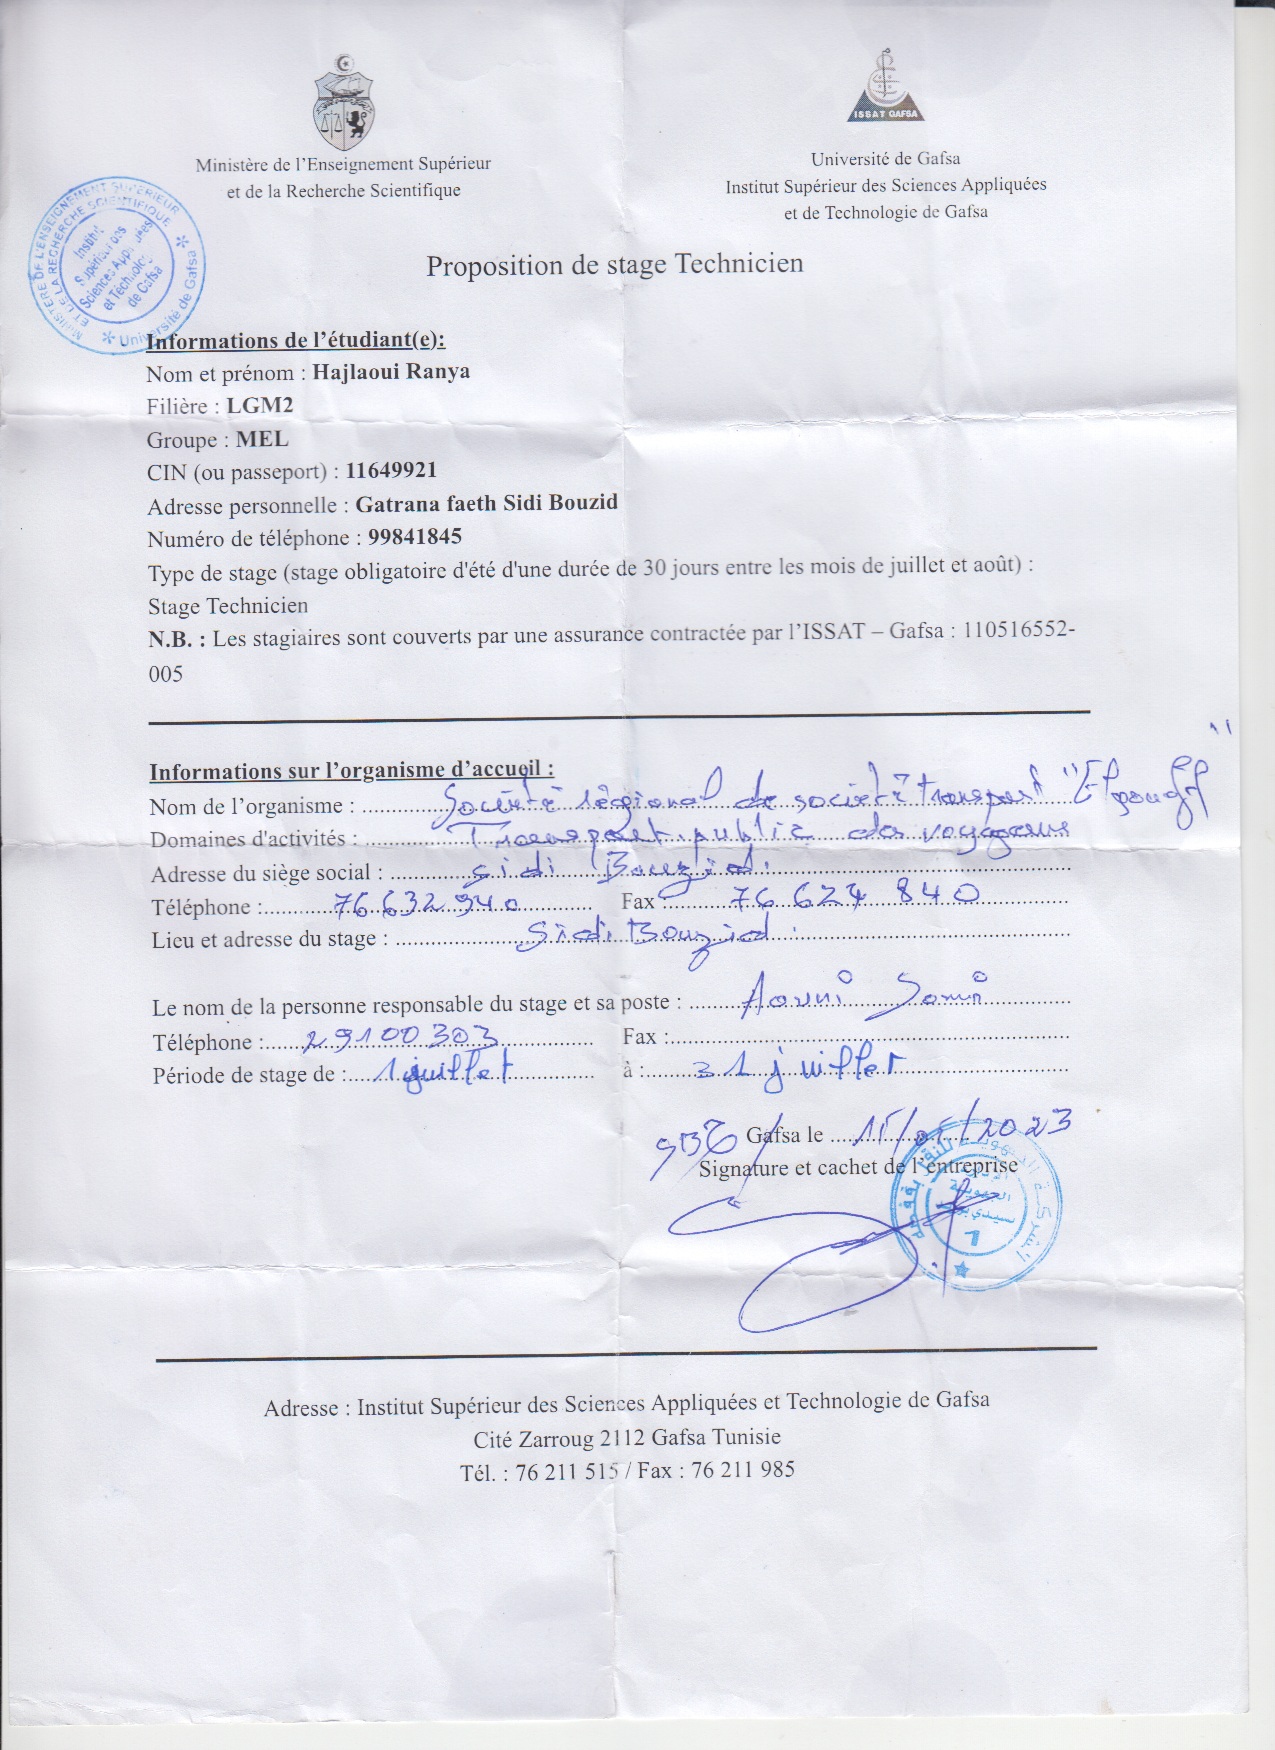 ISSAT GAFSA
Ministère de l'Enseignement Supérieur
et de la Recherche Scientifique
Université de Gafsa
Institut Supérieur des Sciences Appliquées
et de Technologie de Gafsa
MINISTERE DE L'ENSEIGNEMENT SUPERIEUR
ET DE LA RECHERCHE SCIENTIFIQUE
Université de Gafsa
Institut
Supérieur des
Sciences Appliquées
et Technologie
de Gafsa
Proposition de stage Technicien
Informations de l'étudiant(e):
Nom et prénom : Hajlaoui Ranya
Filière : LGM2
Groupe : MEL
CIN (ou passeport) : 11649921
Adresse personnelle : Gatrana faeth Sidi Bouzid
Numéro de téléphone : 99841845
Type de stage (stage obligatoire d'été d'une durée de 30 jours entre les mois de juillet et août) :
Stage Technicien
N.B. : Les stagiaires sont couverts par une assurance contractée par l'ISSAT – Gafsa : 110516552-
005
Informations sur l'organisme d'accueil :
Nom de l'organisme : Société régional de société transport "
Domaines d'activités : Transport public des voyageurs
Adresse du siège social : sidi Bouzid
Téléphone : 76 632 940 Fax : 76 624 840
Lieu et adresse du stage : Sidi Bouzid
Le nom de la personne responsable du stage et sa poste : Aouni Sami
Téléphone : 29100303 Fax :
Période de stage de : 1 juillet à : 31 juillet
SBZ Gafsa le 2023
Signature et cachet de l'entreprise
للنقل بقفصة
الجهوية
1
Adresse : Institut Supérieur des Sciences Appliquées et Technologie de Gafsa
Cité Zarroug 2112 Gafsa Tunisie
Tél. : 76 211 515 / Fax : 76 211 985